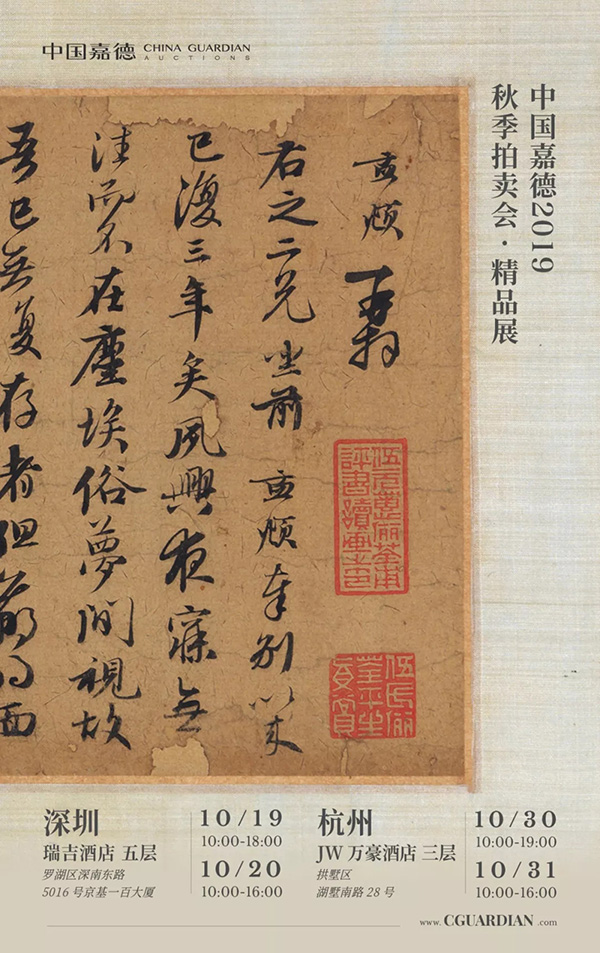 中国嘉德 CHINA GUARDIAN
AUCTIONS
中国嘉德2019
秋季拍卖会·精品展
孟頫再拜
右之二兄坐前孟頫奉别以来
已復三年矣夙興夜寐無
往而不在塵埃俗夢間視故
吾已無復存者但羸得面
伍元蕙儷荃甫
評書讀畫之印
伍氏儷
荃平生
真賞
深圳
瑞吉酒店 五层
罗湖区深南东路
5016 号京基一百大厦
10/19
10:00-18:00
10/20
10:00-16:00
杭州
JW 万豪酒店 三层
拱墅区
湖墅南路 28 号
10/30
10:00-19:00
10/31
10:00-16:00
www. CGUARDIAN .com